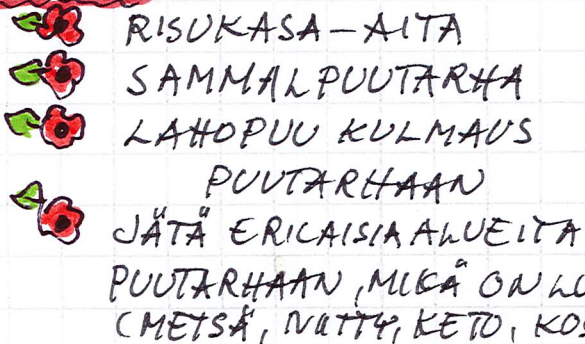 RISUKASA-AITA
SAMMALPUUTARHA
LAHOPUU KULMAUS
PUUTARHAAN
JÄTÄ ERILAISIA ALUEITA
PUUTARHAAN, MIKÄ ON
(METSÄ, NIITTY, KETO,